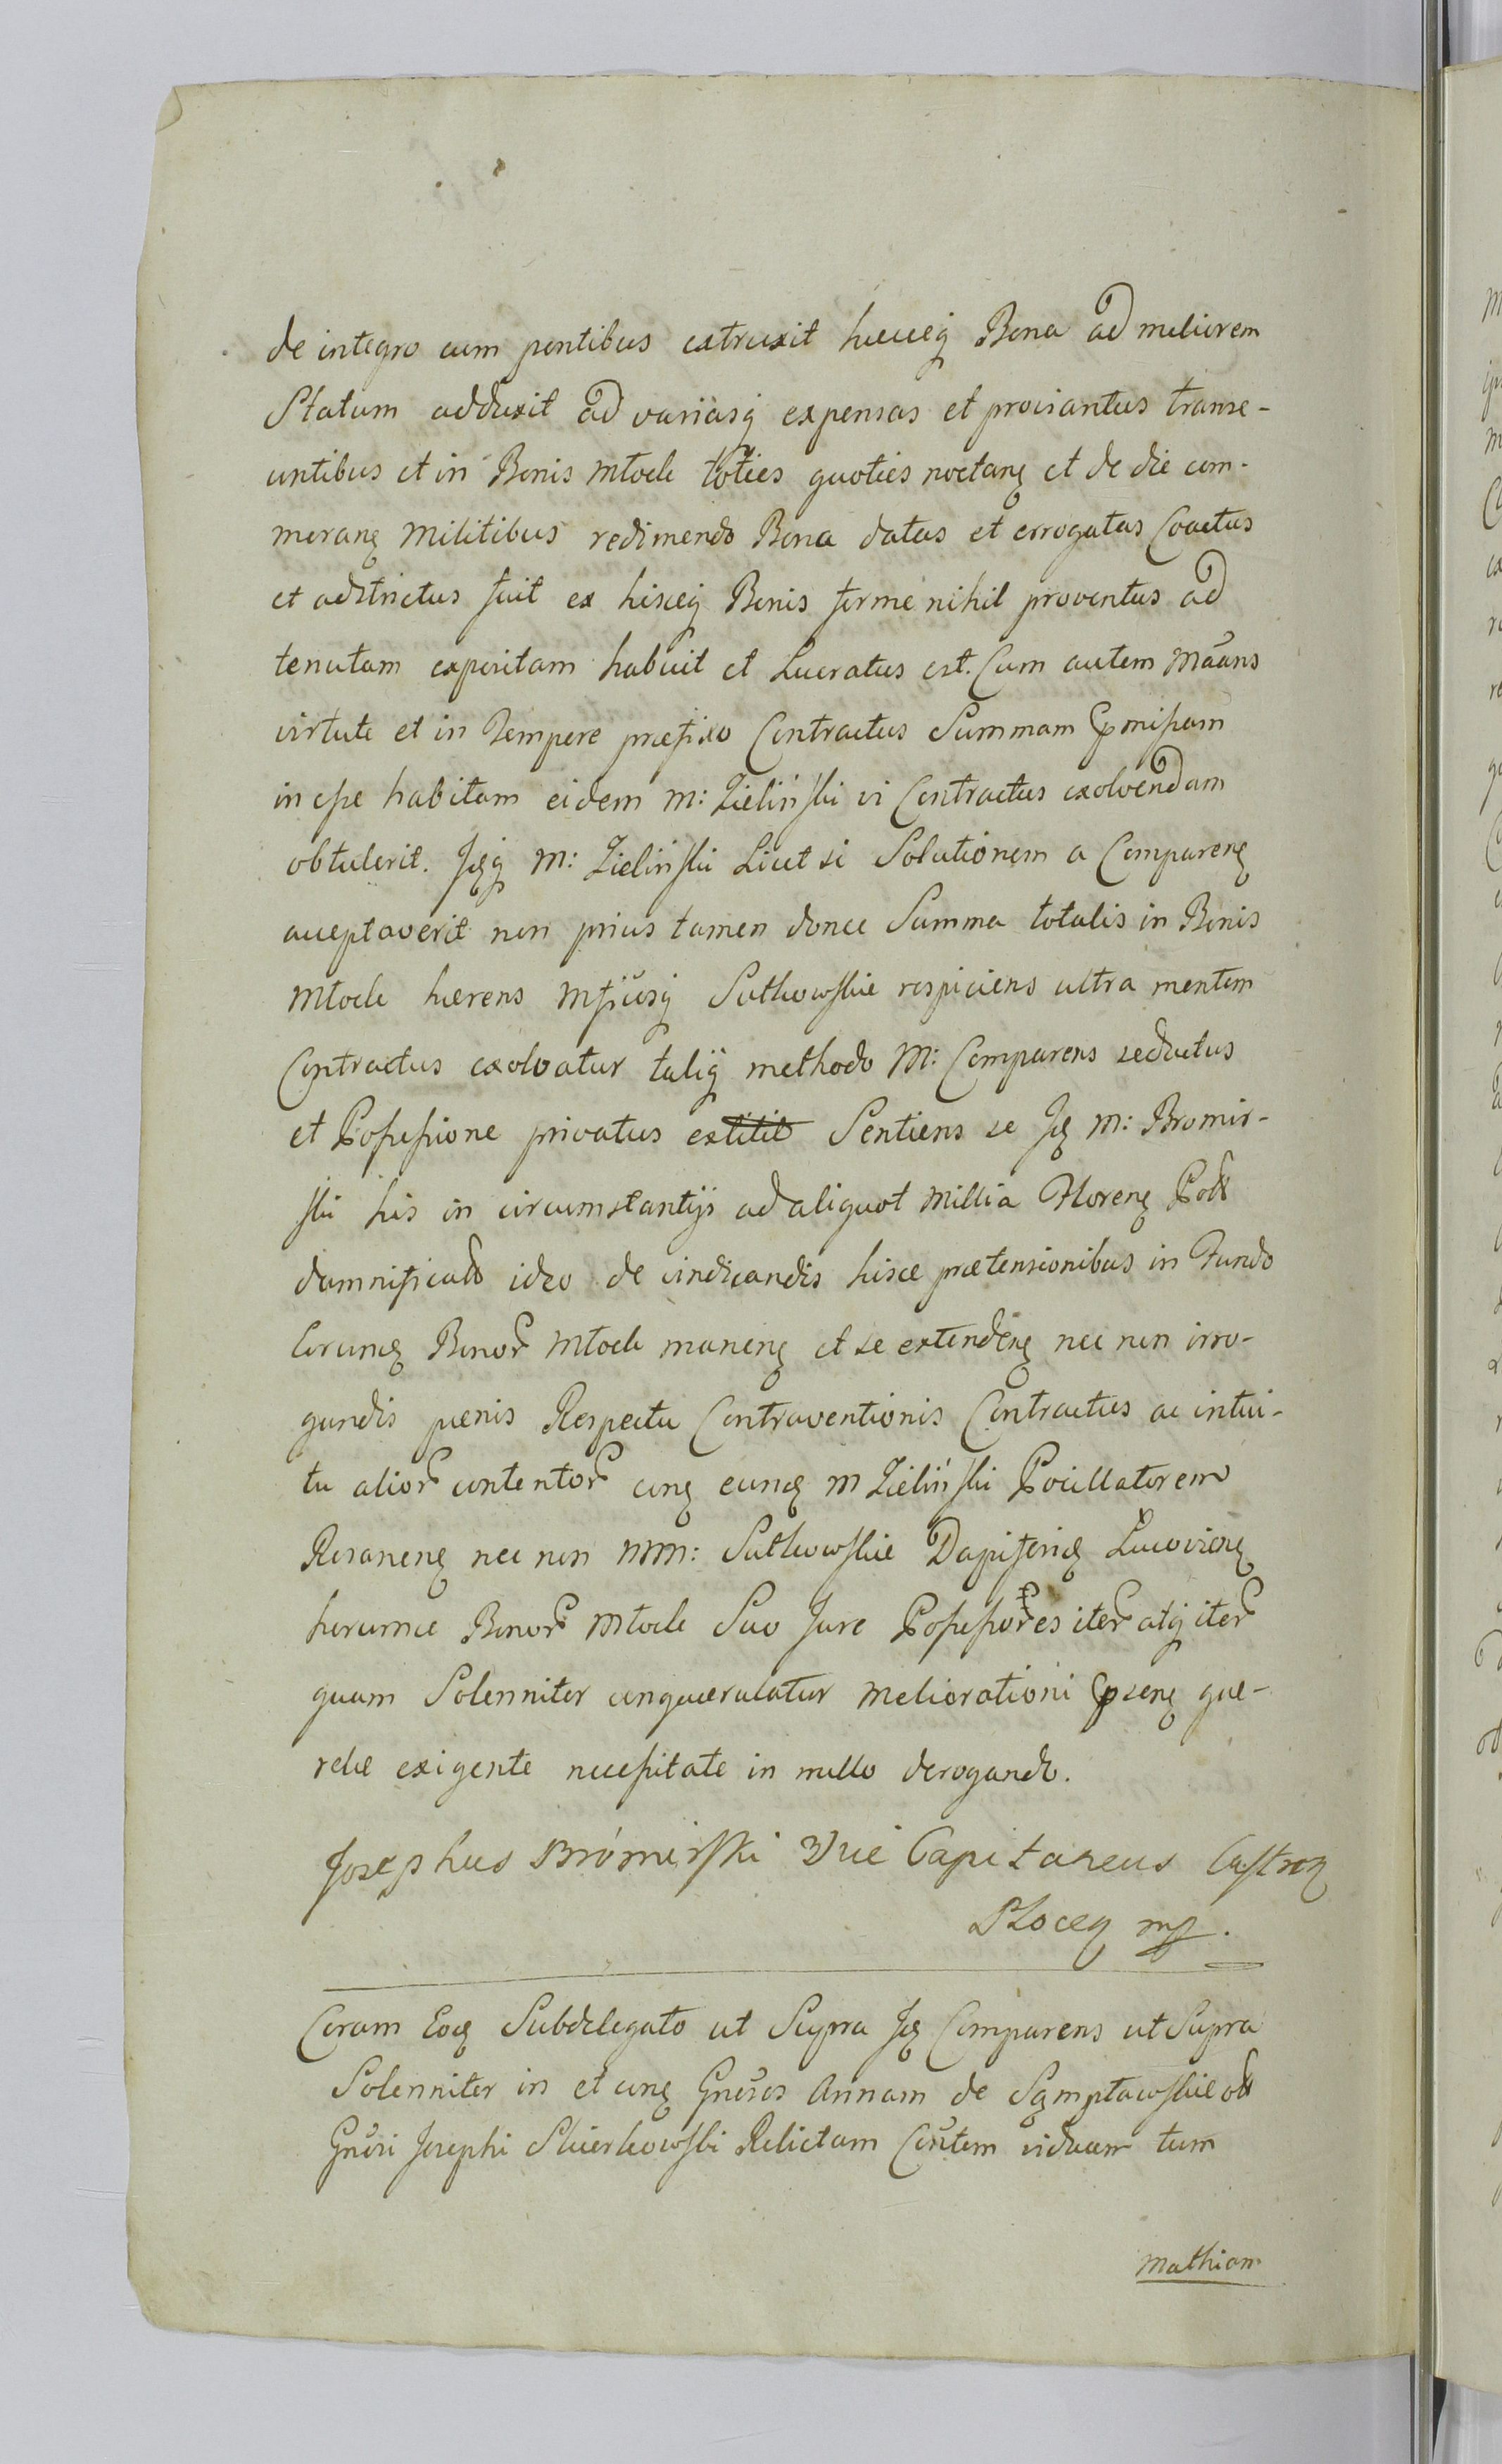 de integro cum pontibus extruxit hæcceq Bona ad meliorem
Statum adduxit ad variasq expensas et proviantus transe-
untibus et in Bonis Młock toties quoties noctanȝ et de die com-
moranȝ Militibus redimendo Bona datas et errogatas Coactus
et adstrictus fuit ex hisceq Bonis ferme nihil proventus ad
tenutam expiritam habuit et Lucratus est. Cum autem
virtute et in Tempore præfixo Contractus Summam
in esse habitam eidem M: Zieliński vi Contractus exolvendam
obtulerit. M: Zieliński Licet si Solutionem a Comparenȝ
acceptaverit non prius tamen donec Summa totalis in Bonis
Młock hærens Sutkowskie respiciens ultra mentem
Contractus exolvatur taliq methodo M: Comparens seductus
et Possessione privatus extitit Sentiens se Jdȝ M: Bromir-
ski his in circumstantijs ad aliquot Millia Florenȝ Poll
damnificatū ideo de vindicandis hisce prætensionibus in Fundo
eorundȝ Bonor Młock manenȝ et se extendenȝ nec non irro-
gandis pænis Respectu Contraventionis Contractus ac intui-
tu alior contentor conȝ eundȝ M Zieliński Pocillatorem
Rosanenȝ nec non MM: Sutkowskie Dapiferidȝ
horumce Bonor Młock Suo Jure Possessores iter atq iter
quam Solenniter conquærulatur Meliorationi præsenȝ que-
relæ exigente necessitate in nullo derogando.
Josephus Brómirski Vice Capitaneus Castrenȝ
Płocenȝ mp.
Coram Eodȝ Subdelegato ut Supra Jdȝ Comparens ut Supra
Solenniter in et conȝ Gnosos Annam de Sęmpławskie oll
Gnosi Josephi Skierkowski Relictam Consortem viduam tum
Mathiam